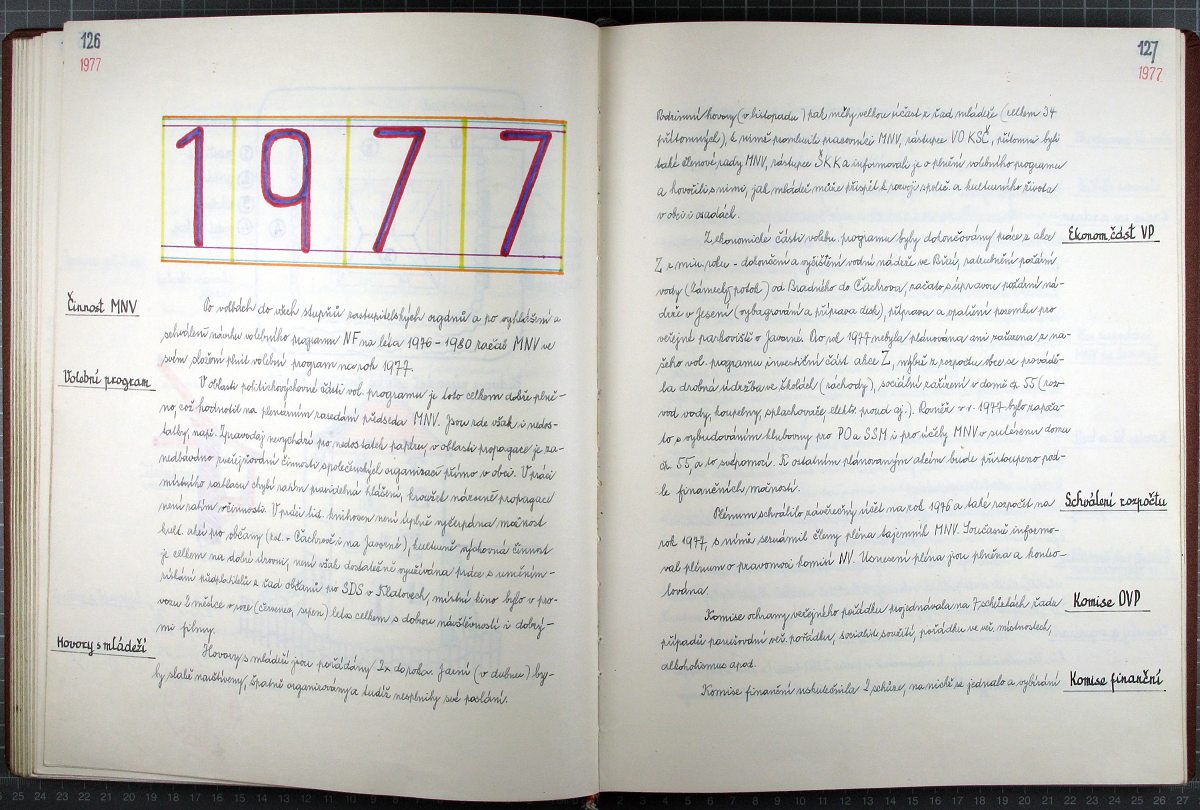 126
1977
1977
Činnost MNV
Po volbách do všech stupňů zastupitelských orgánů a po vyhlášení a
schválení návrhu volebního programu NF na léta 1976 - 1980 začal MNV ve
svém složení plnit volební program na rok 1977.
Volební program
V oblasti politickovýchovné části vol. programu je toto celkem dobře plně-
no, což hodnotil na plenárním zasedání předseda MNV. Jsou zde však i nedos-
tatky, např. Zpravodaj nevychází pro nedostatek papíru, v oblasti propagace je za-
nedbáváno zveřejňování činnosti společenských organisací přímo v obci. V práci
místního rozhlasu chybí zatím pravidelná hlášení, kroužek názorné propagace
není zatím v činnosti. V práci lid. knihoven není úplně vyčerpána možnost
kult. akcí pro občany (ust. v Čachrově i na Javorné), kulturně výchovná činnost
je celkem na dobré úrovni, není však dostatečně využívána práce s uměním-
získání předplatitelů z řad občanů pro SDS v Klatovech, místní kino bylo v pro-
vozu 2 měsíce v roce (červenec, srpen) letos celkem s dobrou návštěvností i dobrý-
mi filmy.
Hovory s mládeží
Hovory s mládeží jsou pořádány 2x do roka. Jarní (v dubnu) by-
ly slabě navštíveny, špatně organizovány a tudíž nesplnily své poslání.
127
1977
Podzimní hovory (v listopadu) pak měly velkou účast z řad mládeže (celkem 34
přítomných), k nimž promluvili pracovníci MNV, zástupce VO KSČ, přítomni byli
také členové rady MNV, zástupce ŠKK a informovali je o plnění volebního programu
a hovořili s nimi, jak mládež může přispět k rozvoji společ. a kulturního života
v obci i osadách.
Ekonom část VP
Z ekonomické části voleb. programu byly dokončovány práce z akce
Z z min. roku - dokončení a vyčištění vodní nádrže ve Březí, zatrubnění požární
vody (Zámecký potok) od Bradného do Čachrova, začato s úpravou požární ná-
drže v Jesení (vybagrování a příprava desk), příprava a opatření pozemku pro
veřejné parkoviště v Javorné. Pro rok 1977 nebyla plánována ani zařazena z na-
šeho vol. programu investiční část akce Z, nýbrž z rozpočtu obce se prováдě-
la drobná údržba ve školách (záchody), sociální zařízení v domě čp. 55 (roz-
vod vody, koupelny, splachovače, elektr. proud aj.). Rovněž v r. 1977 bylo započa-
to s vybudováním klubovny pro PO a SSM i pro účely MNV v suterénu domu
čp. 55 a to svépomocí. K ostatním plánovaným akcím bude přistoupeno pod-
le finančních možností.
Schválení rozpočtu
Plénum schválilo závěrečný účet na rok 1976 a také rozpočet na
rok 1977, s nímž seznámil členy pléna tajemník MNV. Současně informo-
val plénum o pravomoci komisí NV. Usnesení pléna jsou plněna a kontro-
lována.
Komise OVP
Komise ochrany veřejného pořádku projednávala na 7 schůzkách řadu
případů porušování veř. pořádku, socialist. soužití, pořádku ve veř. místnostech,
alkoholismus apod.
Komise finanční
Komise finanční uskutečnila 2 schůze, na nichž se jednalo a vybírání